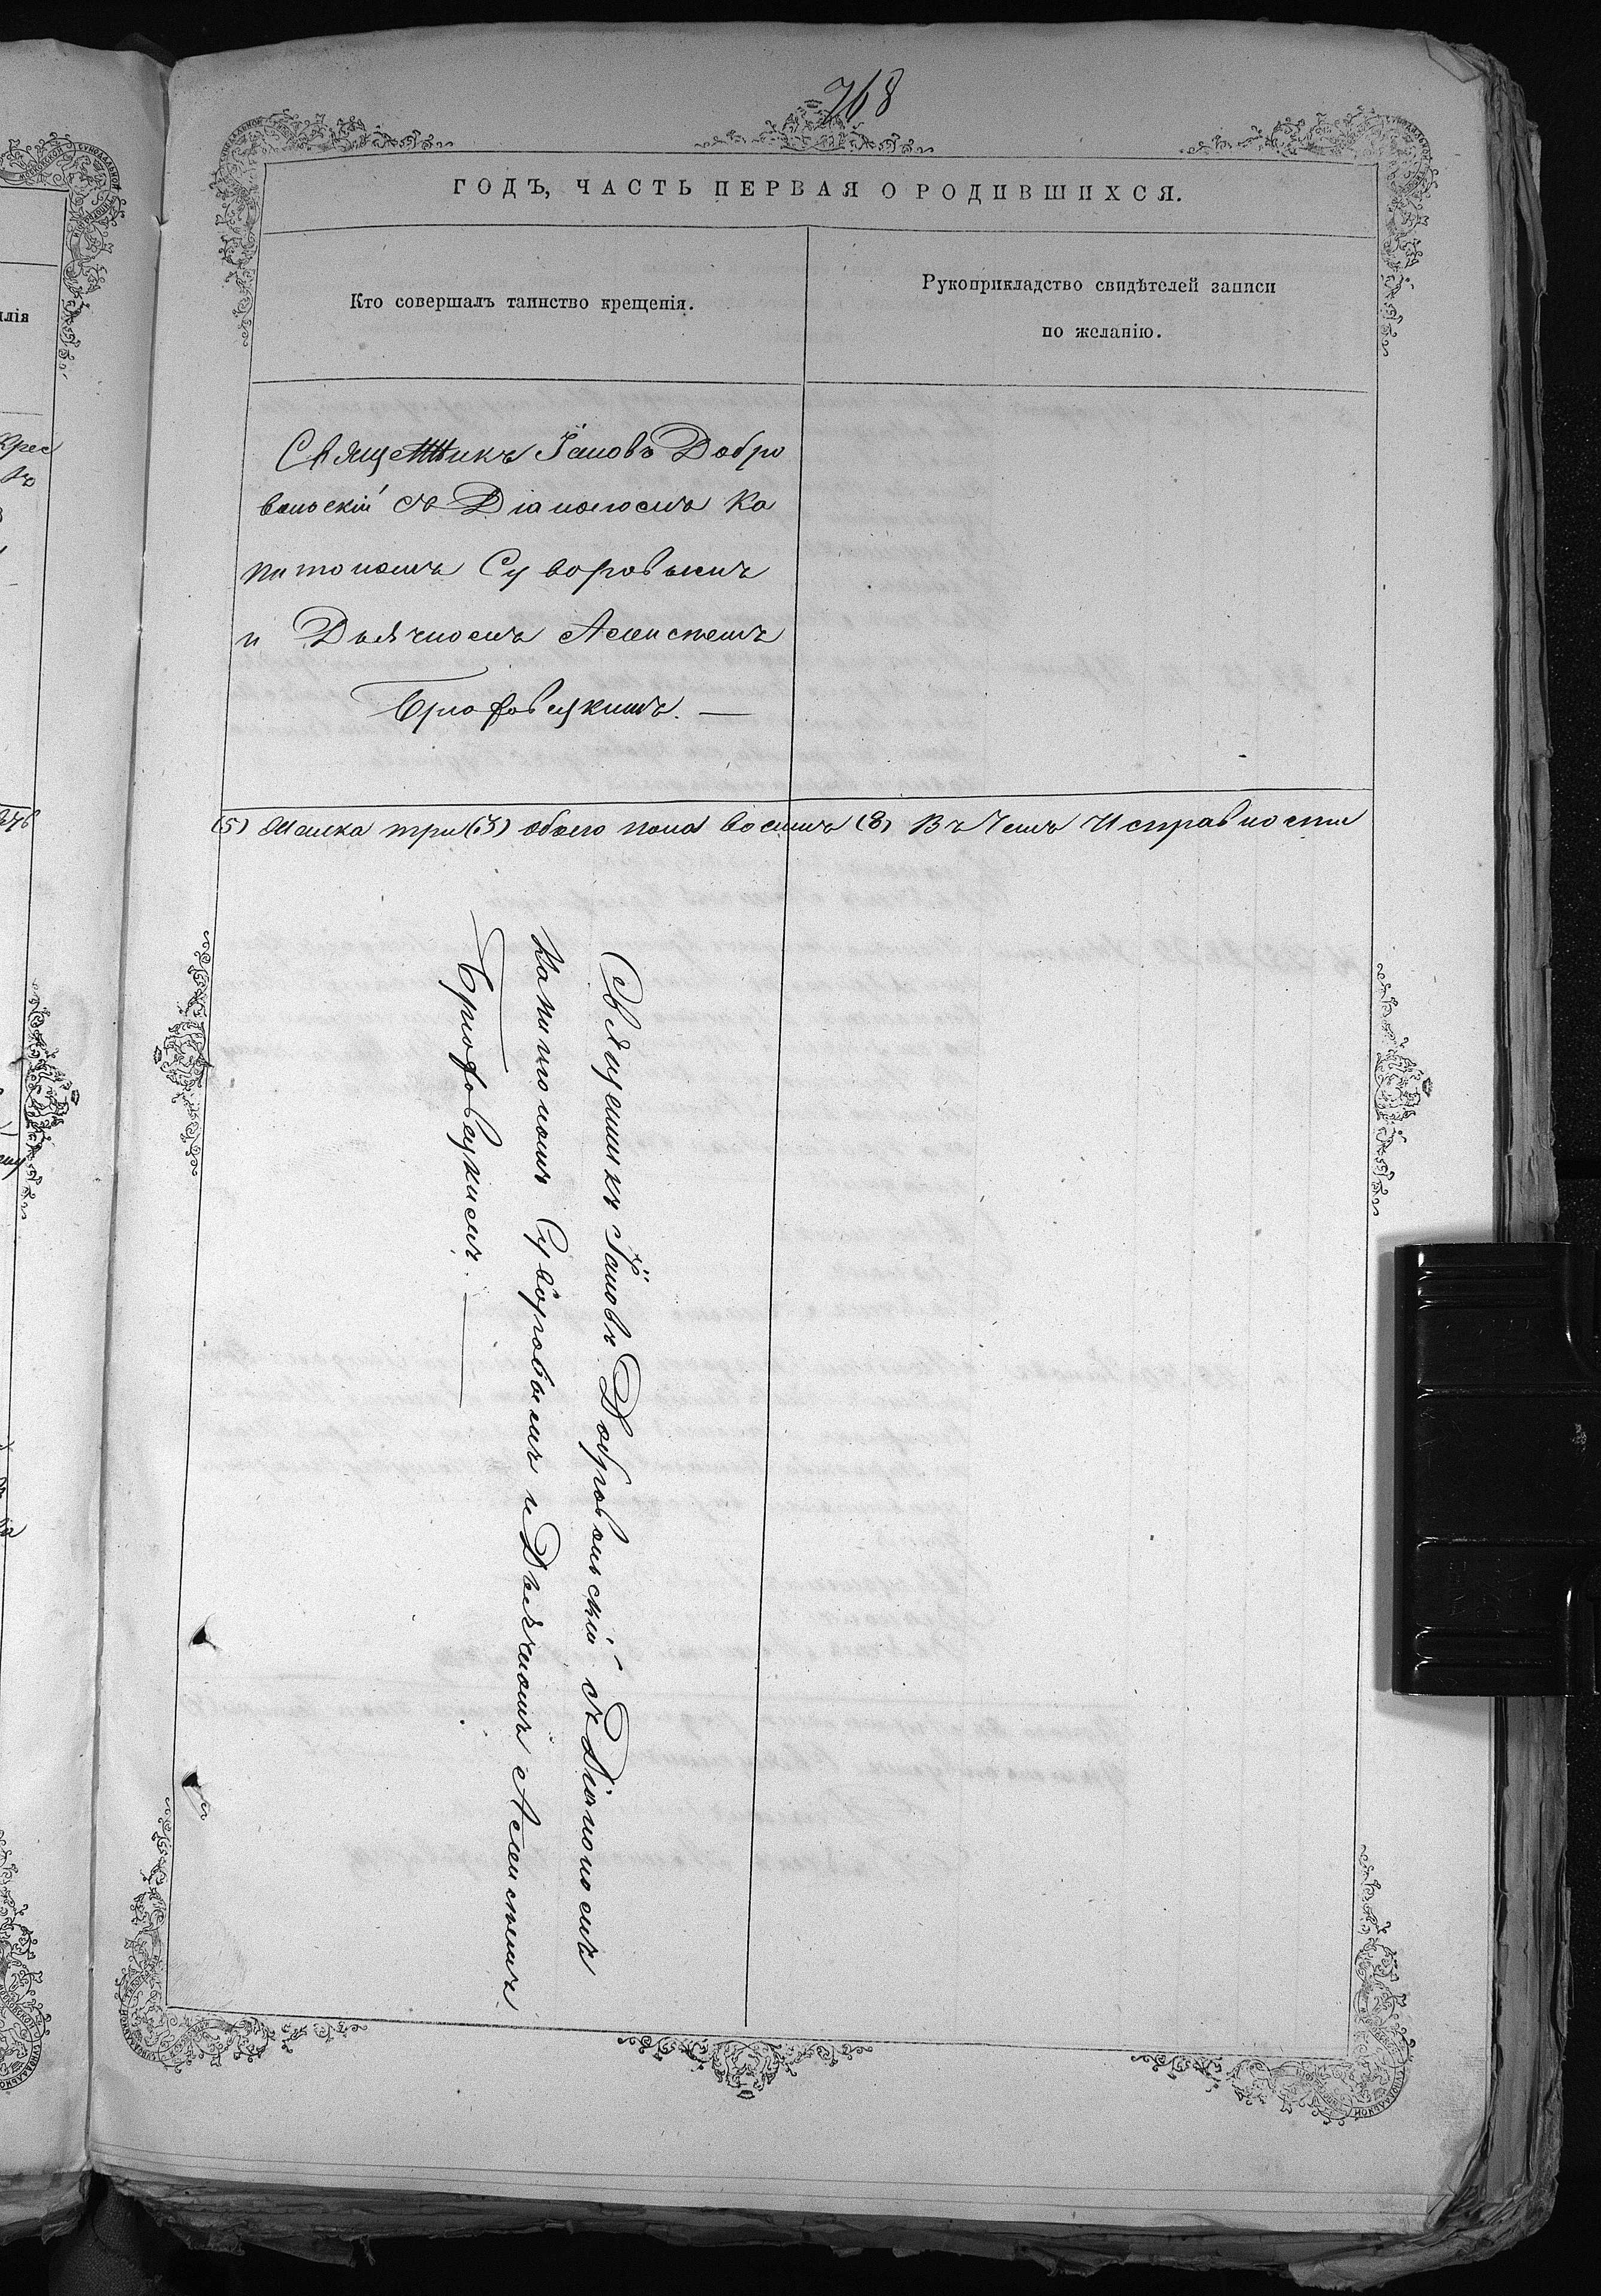 768
ГОДЪ, ЧАСТЬ ПЕРВАЯ О РОДИВШИХСЯ.
Кто совершалъ таинство крещенія.
Рукоприкладство свидѣтелей записи
по желанію.
Священникъ Іаковъ Добро
вольскій съ Діакономъ Ка
питономъ Суворовымъ
и Дьячкомъ Алексѣемъ
(5) Женска три (3) обоего пола восемь (8) Въ чемъ Исправности
Священникъ Іаковъ Добровольскій съ Діакономъ
Капитономъ Суворовымъ и Дьячкомъ Алексѣемъ